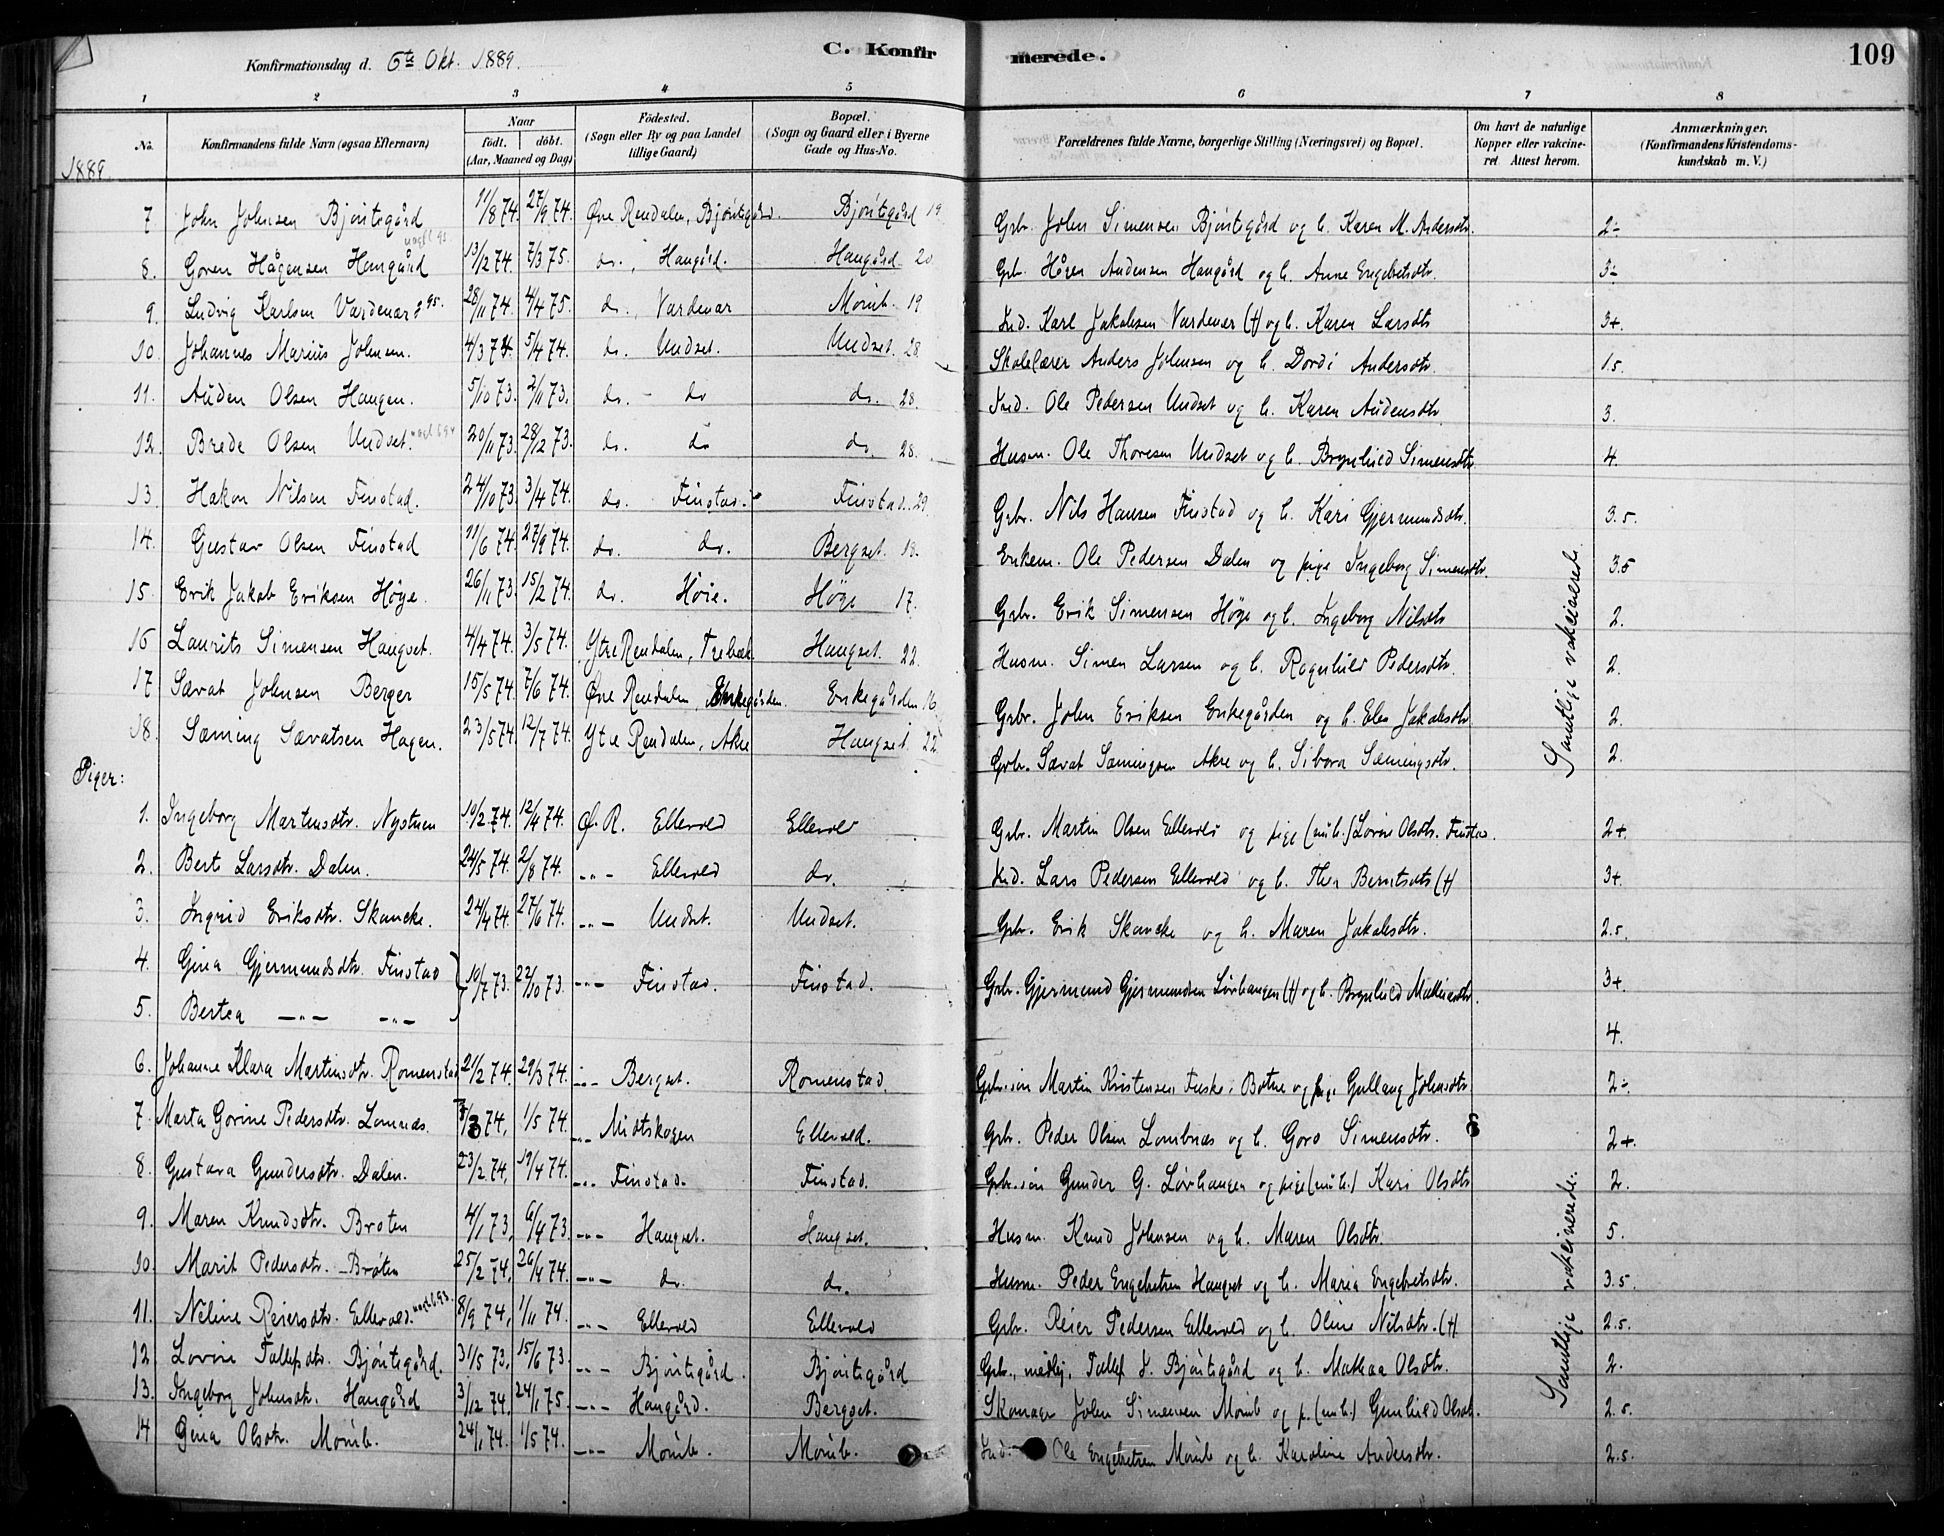 Konfirmationsdag d. 6te Okt. 1889.
C. Konfir merede. 109
1 2 3 4 5 6 7 8
No. Konfirmandens fulde Navn (ogsaa Efternavn) Naar født. døbt. (Aar, Maaned og Dag) Fødested. (Sogn eller By og paa Landet tillige Gaard) Bopæl. (Sogn og Gaard eller i Byerne Gade og Hus-No. Forældrenes fulde Navne, borgerlige Stilling (Næringsvei) og Bopæl. Om havt de naturlige Kopper eller vakcineret Attest herom. Anmærkninger. (Konfirmandens Kristendomskundskab m. V.)
1889
7. John Johnsen Bjøntegård 11/8 74. 27/9 74. Øvre Rendalen, Bjøntegård. Bjøntegård 19 Grb. John Simensen Bjøntegård og h. Karen M. Andersdtr. 2-
8. Goren Hågensen Haugård 13/12 74. 7/3 75. do., Haugård. Haugård 20 Grb. Hågen Audensen Haugård og h. Anne Engebretsdtr. 3-
9. Ludvig Karlsen Vardenær 28/11 74. 4/4 75. do., Vardenær Momb. 19 Ind. Karl Jakobsen Vardenær (†) og h. Karen Larsdtr 3+
10. Johannes Marius Johnsen. 4/3 74. 5/4 74. do. Undset. Undset. 28 Skolelærer Anders Johnsen og h. Dordi Andersdtr. 1.5.
11. Auden Olsen Haugen. 5/10 73. 2/11 73. do. - do do. 28. Ind. Ole Pedersen Undset og h. Karen Audensdtr 3.
12. Brede Olsen Undset. 20/11 73. 28/12 73. do. do do. 28. Husm. Ole Thoresen Undset og h. Brynhild Simensdtr 4.
13. Hakon Nilsen Finstad. 24/10 73. 3/4 74. do. Finstad. Finstad. 29. Grbr. Nils Hansen Finstad og h. Kari Gjermundsdtr. 3.5.
14. Gustav Olsen Finstad 11/6 74. 27/9 74. do. do. Bergset. 18. Enkem. Ole Pedersen Dalen og pige Ingeborg Simensdtr. 3.5
15. Erik Jakob Eriksen Høye. 26/11 73. 15/2 74. do. Høie. Høye 17. Grbr. Erik Simensen Høye og h. Ingeborg Nilsdtr 2.
16 Laurits Simensen Haugset. 4/4 74. 3/5 74. Ytre Rendalen, Trebæk. Haugset. 22. Husm. Simen Larsen og h. Ragnhild Pedersdtr. 2.
17 Savat Johnsen Berger 15/5 74. 7/6 74. Øvre Rendalen, Enkegården. Enkegården 16 Grbr. John Eriksen Enkegården og h. Eles Jakobsdtr 2.
18. Sæming Savatsen Hagen. 23/5 74. 12/7 74. Ytre Rendalen, Akre Haugset. 22 Grbr. Savat Sæmingsen Akre og h. Sibora Sæmingsdtr. 2.
Samtlige vakcinerede.
Piger:
1. Ingeborg Martensdtr. Nystuen 10/2 74. 12/4 74. Ø. R. Ellevold Ellevold Grbr. Martin Olsen Ellevold og pige (nu h.) Lovise Olsdtr. Finstad. 2+
2. Berit Larsdtr. Dalen. 24/5 74. 2/8 74. -"- Ellevold do. Ind. Lars Pedersen Ellevold og h. Thea Berntsdtr (†) 3+
3. Ingrid Eriksdtr. Skancke. 24/4 74. 27/6 74. -"- Undset. Undset. Grbr. Erik Skancke og h. Maren Jakobsdtr. 2.5.
4. Gina Gjermundsdtr. Finstad 10/7 73. 22/10 73. -"- Finstad. Finstad. Grbr. Gjermund Gjermundsen Løvhaugen (†) og h. Brynhild Mathiasdtr. 3+.
5. Bertea -"- -"- 4.
6. Johanne Klara Martinsdtr. Romenstad 21/2 74. 29/3 74. -"- Bergset. Romenstad. Grbr.søn Martin Kristensen Fiske i Botne og pige Gullaug Johnsdtr 2-
7. Marta Gorine Pedersdtr. Lomnæs. 7/3 74. 1/5 74. -"- Midtskogen Ellevold. Grb. Peder Olsen Lombnæs og h. Goro Simensdtr. 2+.
8. Gustava Gundersdtr. Dalen. 23/2 74. 19/4 74. -"- Finstad. Finstad. Grbr.søn Gunder G. Løvhaugen og pige (nu h.) Kari Olsdtr 2.
9. Maren Knudsdtr. Broten 4/1 73. 6/4 73. -"- Haugset. Haugset. Husm. Knud Johnsen og h. Maren Olsdtr. 5.
10. Marit Pedersdtr. Bråten 25/2 74. 26/4 74. -"- do. do. Husm. Peder Engebretsen Haugset og h. Maria Engebretsdtr. 3.5.
11. Neline Reiersdtr. Ellevold. 8/9 74. 1/11 74. -"- Ellevold Ellevold Grbr. Reier Pedersen Ellevold og h. Oline Nilsdtr. (†) 2.5.
12. Lovise Tollefsdtr. Bjøntegård. 31/5 73. 15/6 73. -"- Bjøntegård. Bjøntegård Grb. Tollef J. Bjøntegård og h. Mathea Olsdtr. 2.
13. Ingeborg Johnsdtr. Haugård 3/12 74. 24/1 75. -"- Haugård. Bergset. Skomager John Simensen Momb og p. (nu h.) Gunhild Olsdt. 2.5.
14 Gina Olsdtr. Momb. 24/1 74. 1/5 74. -"- Momb. Momb. Ind. Ole Engebretsen Momb og h. Karoline Andersdtr. 2.5.
Samtlige vakcinerede.